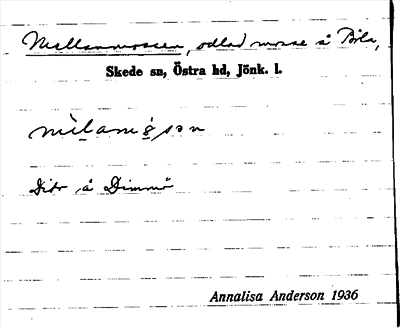 Mellanmossen, odlad mosse å Böla,
Skede sn, Östra hd, Jönk. l.
mìlamòsən
Dito å Dimmö
Annalisa Anderson 1936